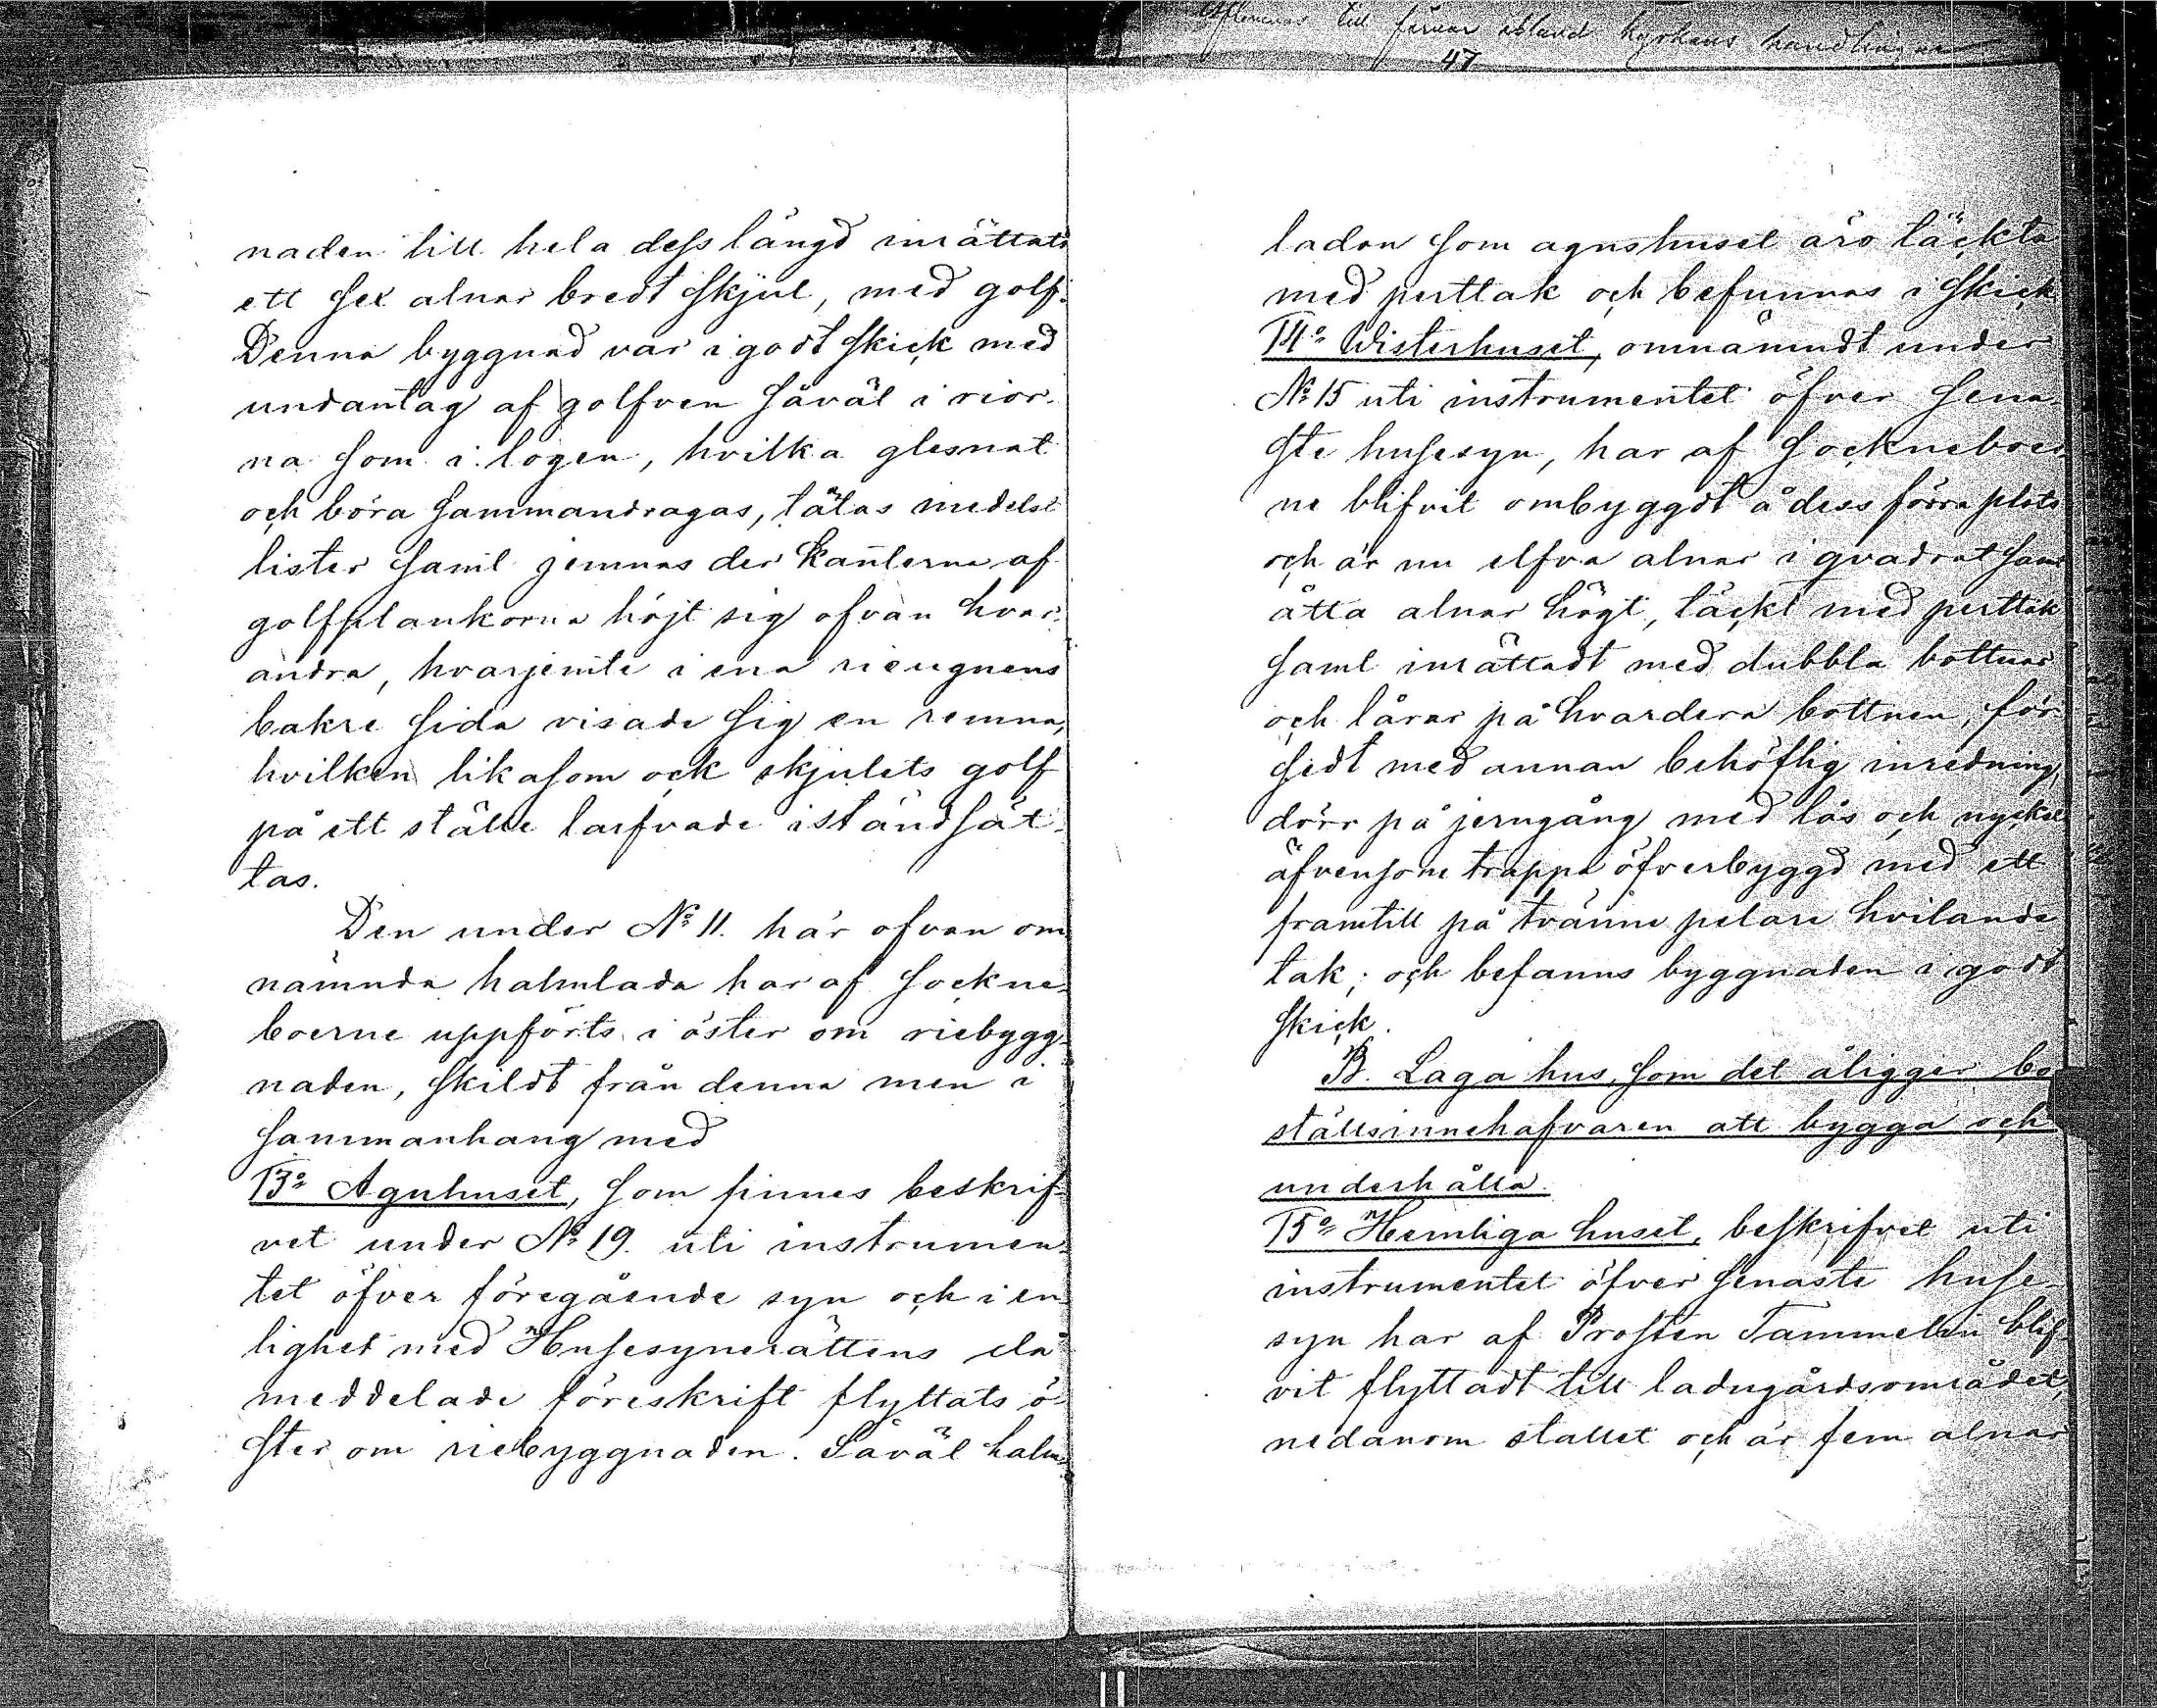 naden till hela dess längd inrättats
ett sex alnar bredt skjul, med golf.
Denna byggnad var i godt skick med
undantag af golfven såväl i rior-
na som i logen, hvilka glesnat
och böra sammandragas, tätas medelst
lister samt jemnas der kanterna af
golfplankorna höjt sig ofvan hvar-
andra, hvarjemte i ena rieugnens
bakre sida visade sig en remna,
hvilken likasom ock skjulets golf
på ett ställe tarfvade iståndsät-
tas.
Den under No 11. här ofvan om-
nämnda halmlada har af Sockne-
boerne uppförts i öster om riebygg-
naden, skildt från denna men i
sammanhang med
13o Agnhuset, som finnes beskrif-
vet under No 19. uti instrumen-
tet öfver föregående syn och i en-
lighet med Husesynerättens då
meddelade föreskrift flyttats ö-
ster om riebyggnaden. Såväl halm-
till kyrkans handlingar
47
ladan som agnshuset äro täckta
med perttak och befunnos i skick
14o Wisterhuset, omnämndt under
No 15 uti instrumentet öfver sena-
ste husesyn, har af Sockneboer-
ne blifvit ombyggdt å dess förra plats
och är nu elfva alnar i qvadrat samt
åtta alnar högt, täckt med perttak
samt inrättadt med dubbla bottnar
och lårar på hvardera bottnen, för-
sedt med annan behöflig inredning,
dörr på jerngång med lås och nyckel
äfvensom trappa öfverbyggd med ett
framtill på tvänne pelare hvilande
tak; och befanns byggnaden i godt
skick.
B. Laga hus, som det åligger bo-
ställsinnehafvaren att bygga och
underhålla.
15o Hemliga huset, beskrifvet uti
instrumentet öfver senaste huse-
syn har af Prosten Tammelin blif-
vit flyttadt till ladugårdsområdet,
nedanom stallet och är fem alnar